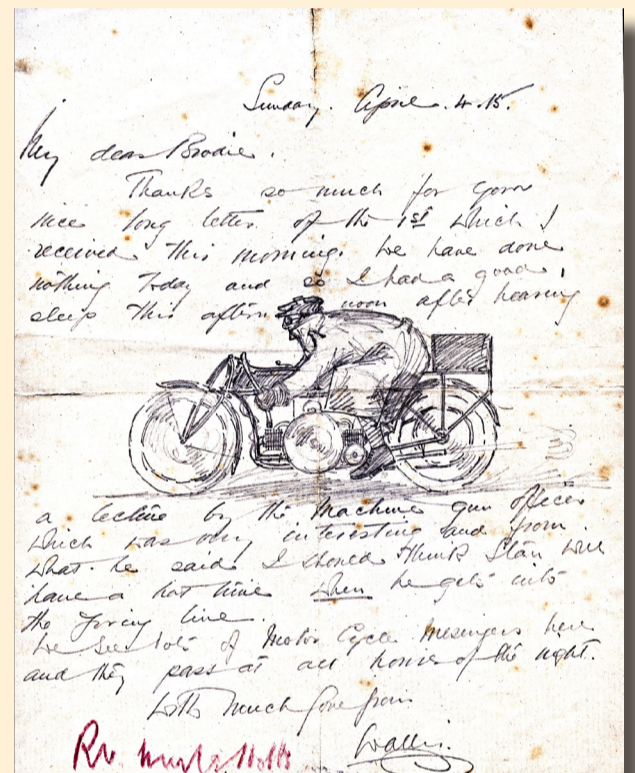 Sunday. April. 4. 15.
My dear Brodie.
Thanks so much for your
nice long letter of the 1st which I
received this morning. We have done
nothing today and so I had a good
sleep this afternoon after hearing
a lecture by the Machine gun officer
which was very interesting and from
what he said I should think Stan will
have a hot time when he gets into
the firing line.
We see lots of Motor Cycle Messengers here
and they pass at all hours of the night.
With much love from
Wallis.